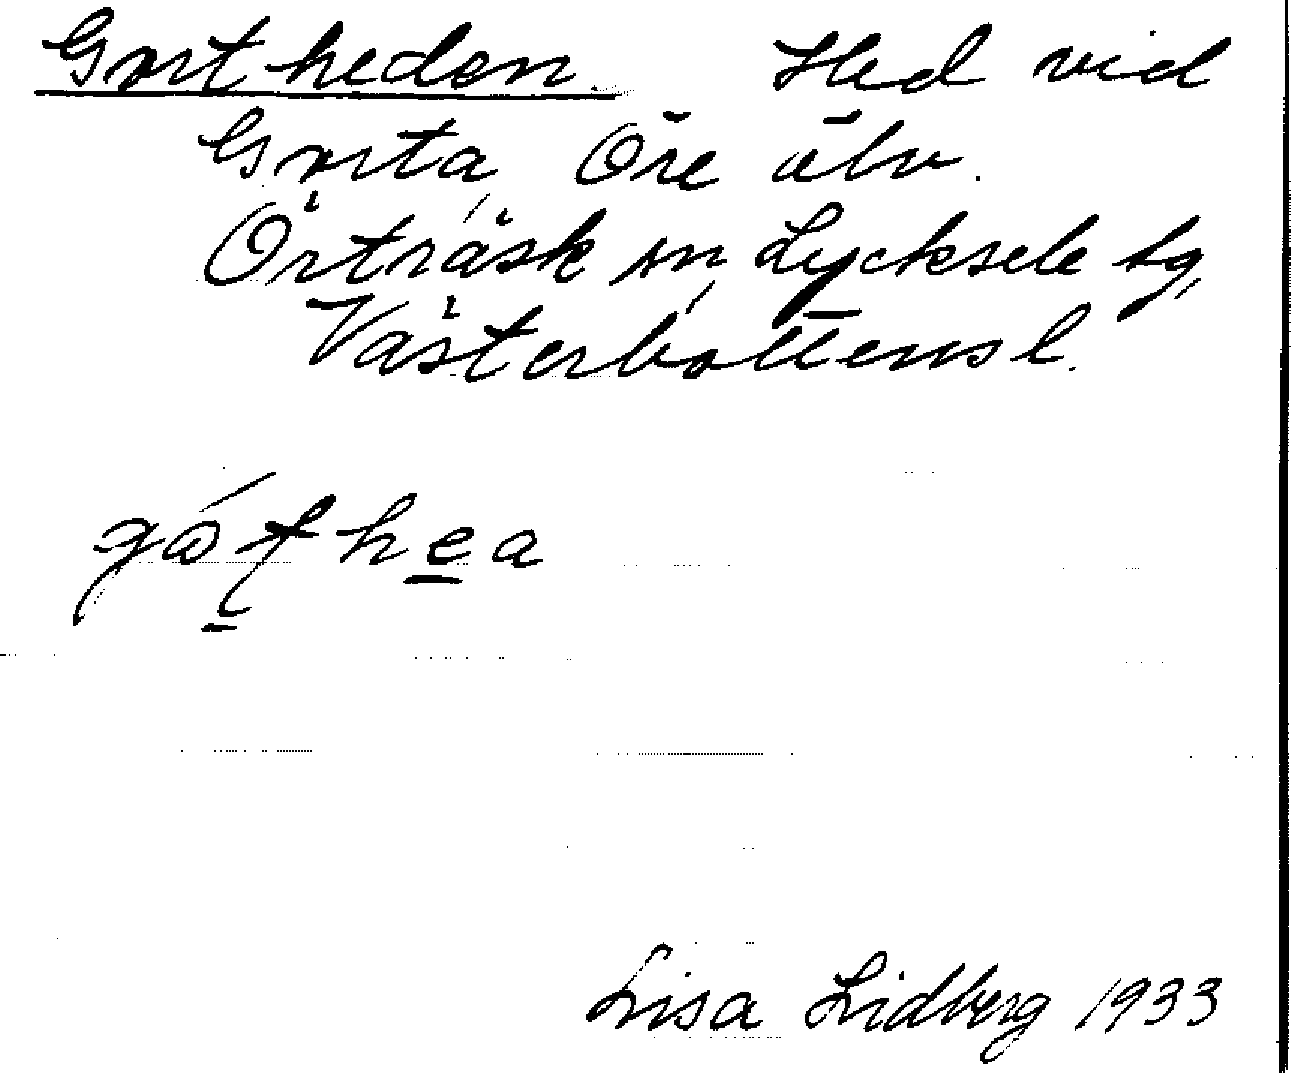 Gortheden. Hed vid
Gorta, Öre älv.
Örträsk sn, Lycksele tg,
Västerbottensl.
Lisa Lidberg 1933